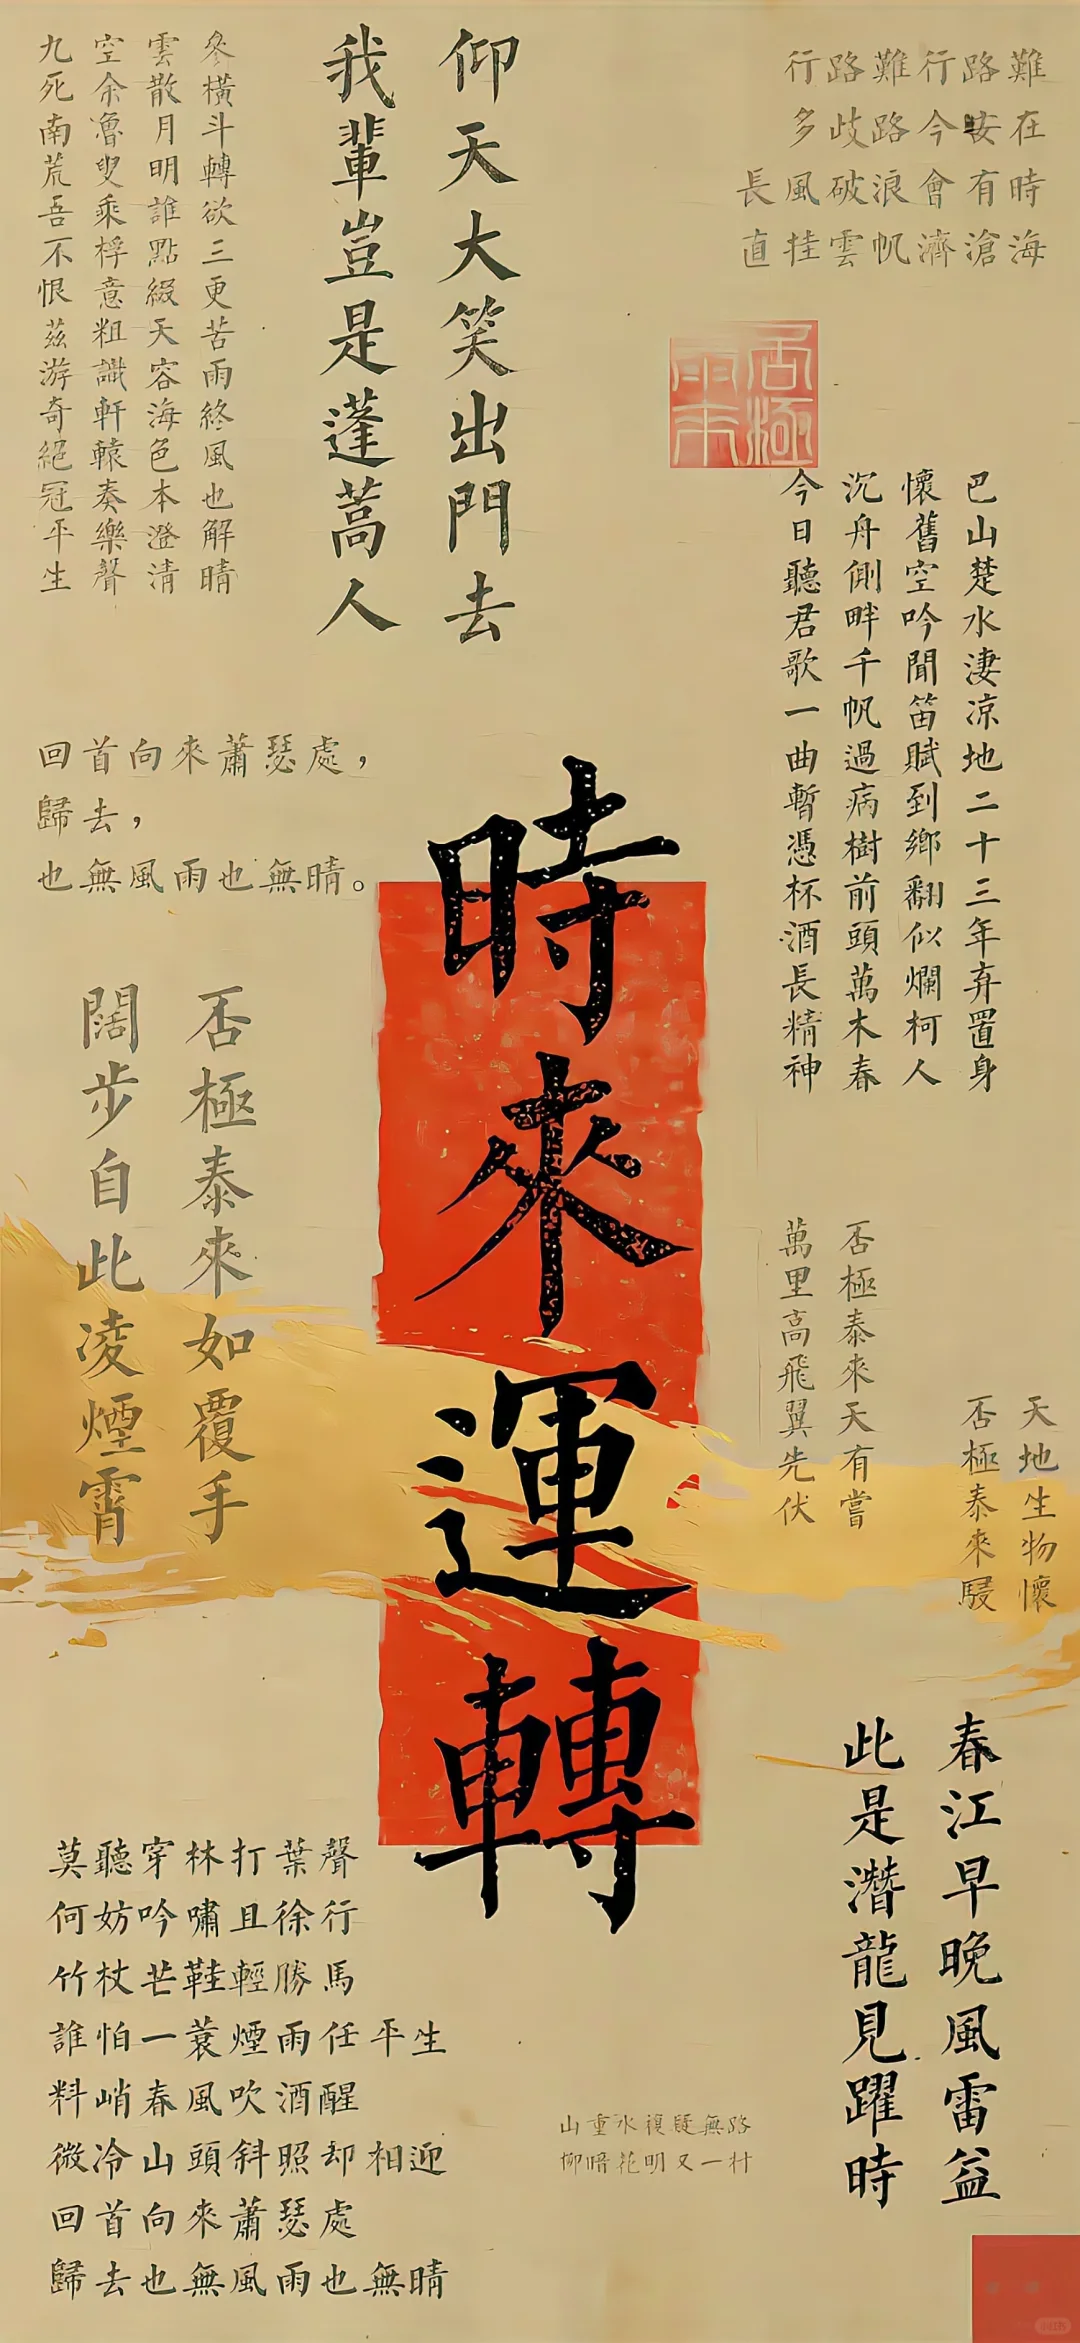 行路難行路難
多歧路今安在
長風破浪會有時
直挂雲帆濟滄海
仰天大笑出門去
我輩豈是蓬蒿人
參橫斗轉欲三更苦雨終風也解晴
雲散月明誰點綴天容海色本澄清
空余魯叟乘桴意粗識軒轅奏樂聲
九死南荒吾不恨茲游奇絕冠平生
否極
巴山楚水淒涼地二十三年弃置身
懷舊空吟聞笛賦到鄉翻似爛柯人
沉舟側畔千帆過病樹前頭萬木春
今日聽君歌一曲暫憑杯酒長精神
回首向來蕭瑟處，
歸去，
也無風雨也無晴。
時來運轉
否極泰來如覆手
闊步自此凌煙霄
否極泰來天有嘗
萬里高飛翼先伏
天地生物懷
否極泰來駸
春江早晚風雷益
此是潛龍見躍時
莫聽穿林打葉聲
何妨吟嘯且徐行
竹杖芒鞋輕勝馬
誰怕一蓑煙雨任平生
料峭春風吹酒醒
微冷山頭斜照却相迎
回首向來蕭瑟處
歸去也無風雨也無晴
山重水複疑無路
柳暗花明又一村